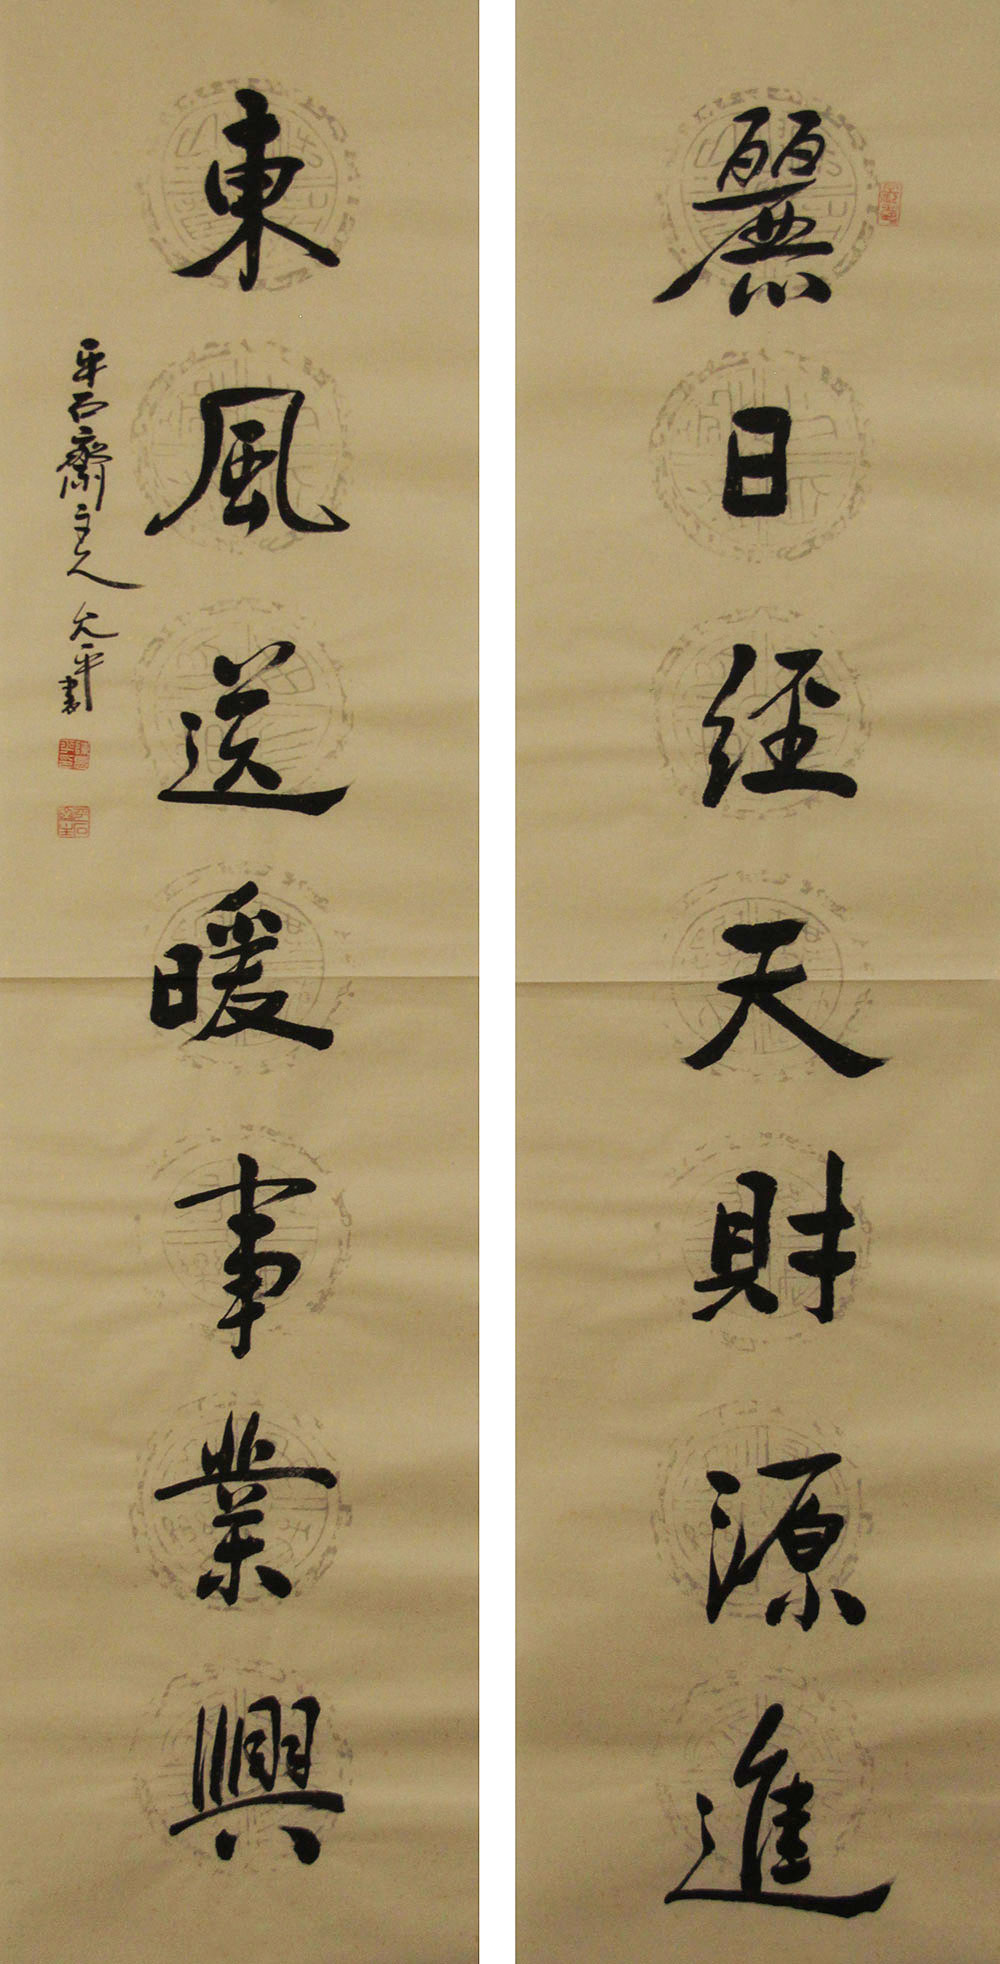 麗日経天財源進
東風送暖事業興
平石齋主人大平書